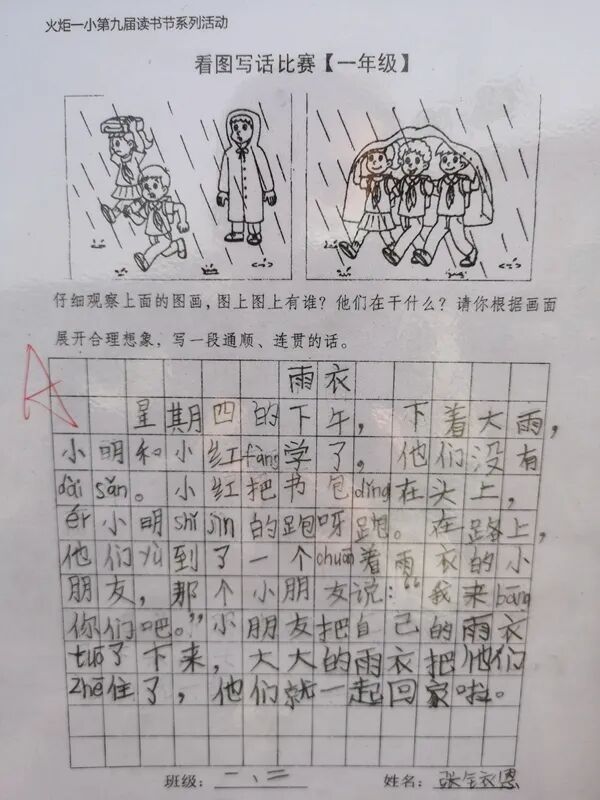 火炬一小第九届读书节系列活动
看图写话比赛【一年级】
仔细观察上面的图画，图上图上有谁？他们在干什么？请你根据画面
展开合理想象，写一段通顺、连贯的话。
A
雨衣
星期四的下午，下着大雨，
小明和小红fàng学了，他们没有
dài sǎn。小红把书包dǐng在头上，
ér小明shǐ jìn的跑呀跑。在路上，
他们yù到了一个chuān着雨衣的小
朋友，那个小朋友说：“我来bāng
你们吧。”小朋友把自己的雨衣
tuō了下来，大大的雨衣把他们
zhē住了，他们就一起回家啦。
班级：一、二 姓名：张 衣恩